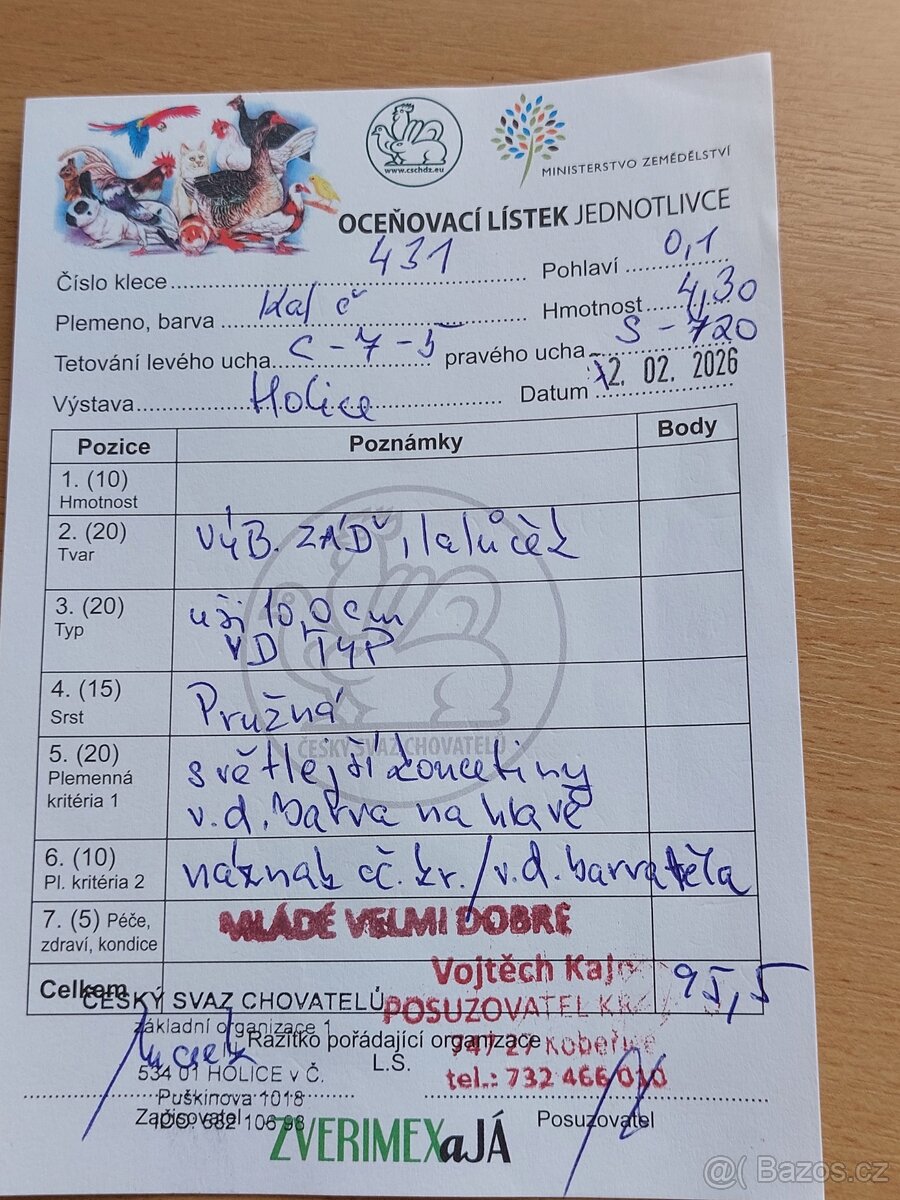 www.cschdz.eu
MINISTERSTVO ZEMĚDĚLSTVÍ
OCEŇOVACÍ LÍSTEK JEDNOTLIVCE
Číslo klece 431 Pohlaví 0,1
Plemeno, barva Kal č Hmotnost 4,30
Tetování levého ucha C-7-5 pravého ucha S-720
Výstava Holice Datum 12. 02. 2026
Pozice Poznámky Body
1. (10)
Hmotnost
2. (20) výB. ZÁĎ, lalůček
Tvar
3. (20) uši 10,0 cm
Typ VD TYP
4. (15) Pružná
Srst
5. (20) světlejší končetiny
Plemenná
kritéria 1 v.d. barva na hlavě
6. (10) náznak čč. kr./v.d. barva těla
Pl. kritéria 2
7. (5) Péče,
zdraví, kondice
MLÁDÉ VELMI DOBRÉ
ČESKÝ SVAZ CHOVATELŮ
Celkem 95,5
Vojtěch
ČESKÝ SVAZ CHOVATELŮ
POSUZOVATEL
základní organizace 1
Razítko pořádající organizace
747 27 Kobeřice
L.S.
534 01 HOLICE v Č.
tel.: 732 466 010
Puškinova 1018
Zapisovatel Posuzovatel
ZVERIMEXaJÁ
@( Bazos.cz